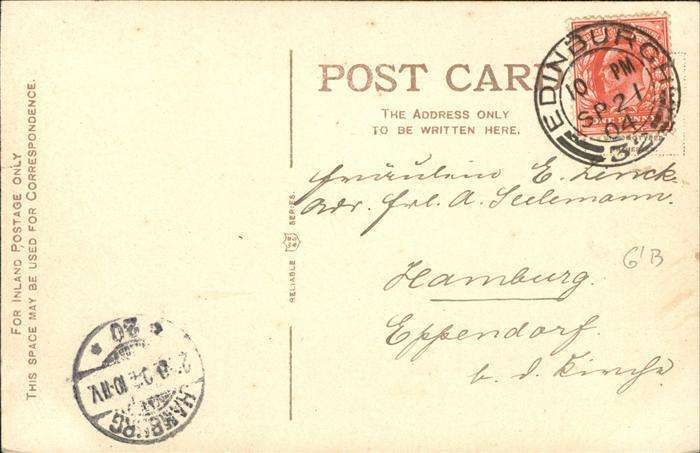 FOR INLAND POSTAGE ONLY
THIS SPACE MAY BE USED FOR CORRESPONDENCE.
RELIABLE SERIES.
POST CAR
THE ADDRESS ONLY
TO BE WRITTEN HERE.
EDINBURGH
10 PM
SP 21
04
32
ONE PENNY
Fräulein E. Zinck.
Adr. Frl. A. Seelemann.
Hamburg.
Eppendorf.
b. d. Kirche
6'B
HAMBURG
20
10-11V